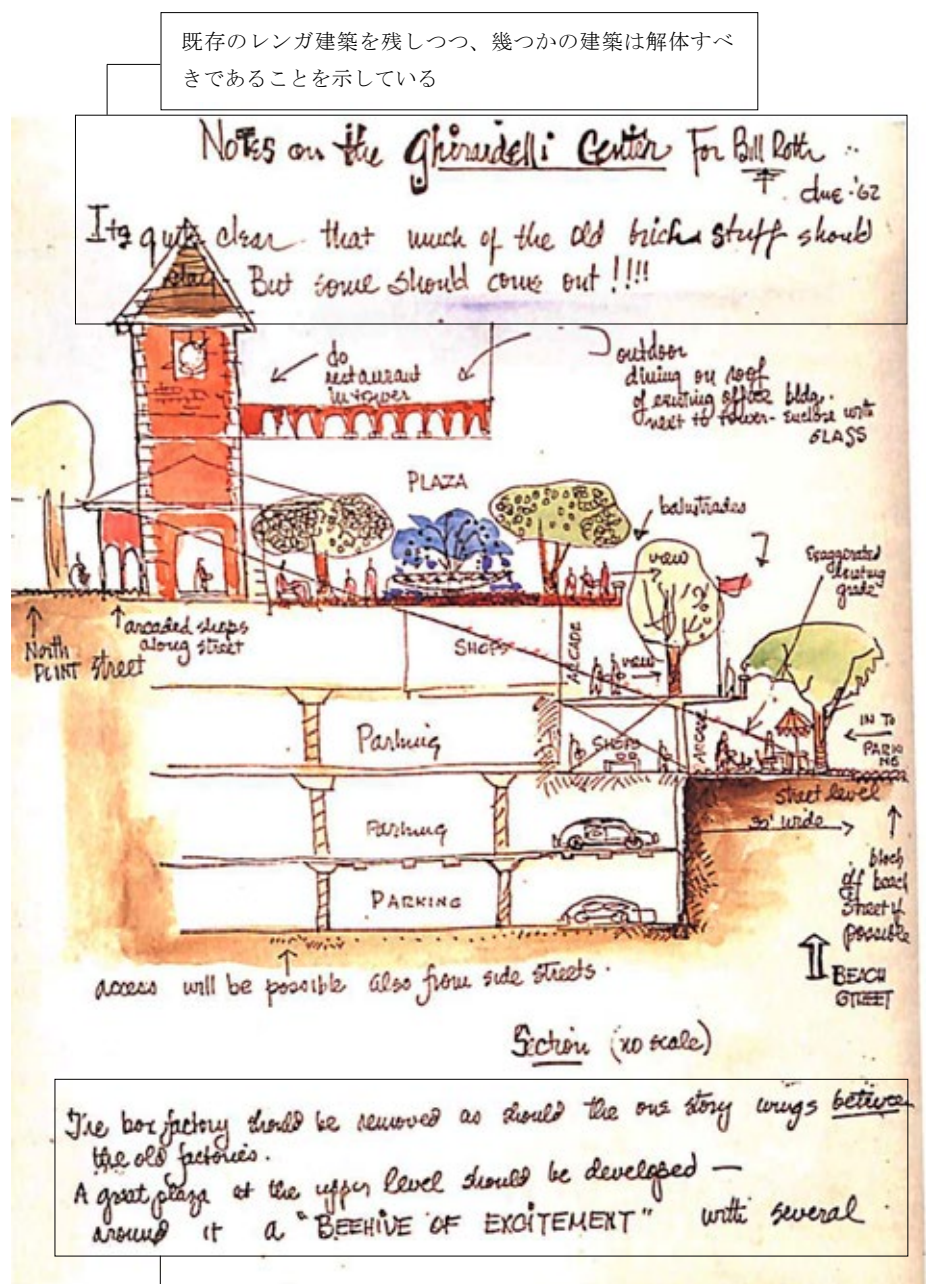 既存のレンガ建築を残しつつ、幾つかの建築は解体すべ
きであることを示している
Notes on the Ghirardelli Center For Bill Roth
due '62
Its quite clear that much of the old brick stuff should
stay But some should come out !!!!
do
restaurant
in tower
outdoor
dining on roof
of existing office bldg.
next to tower - Enclose with
GLASS
PLAZA
balustrades
view
Exaggerated
existing
grade
North
POINT street
arcaded shops
along street
SHOPS
ARCADE
view
Parking
SHOPS
ARCADE
IN TO
PARKI
NG
street level
30' wide
Parking
PARKING
block
off beach
street if
possible
BEACH
STREET
access will be possible also from side streets.
Section (no scale)
The box factory should be removed as should the one story wings betwee
the old factories.
A great plaza at the upper level should be developed —
around it a "BEEHIVE OF EXCITEMENT" with several